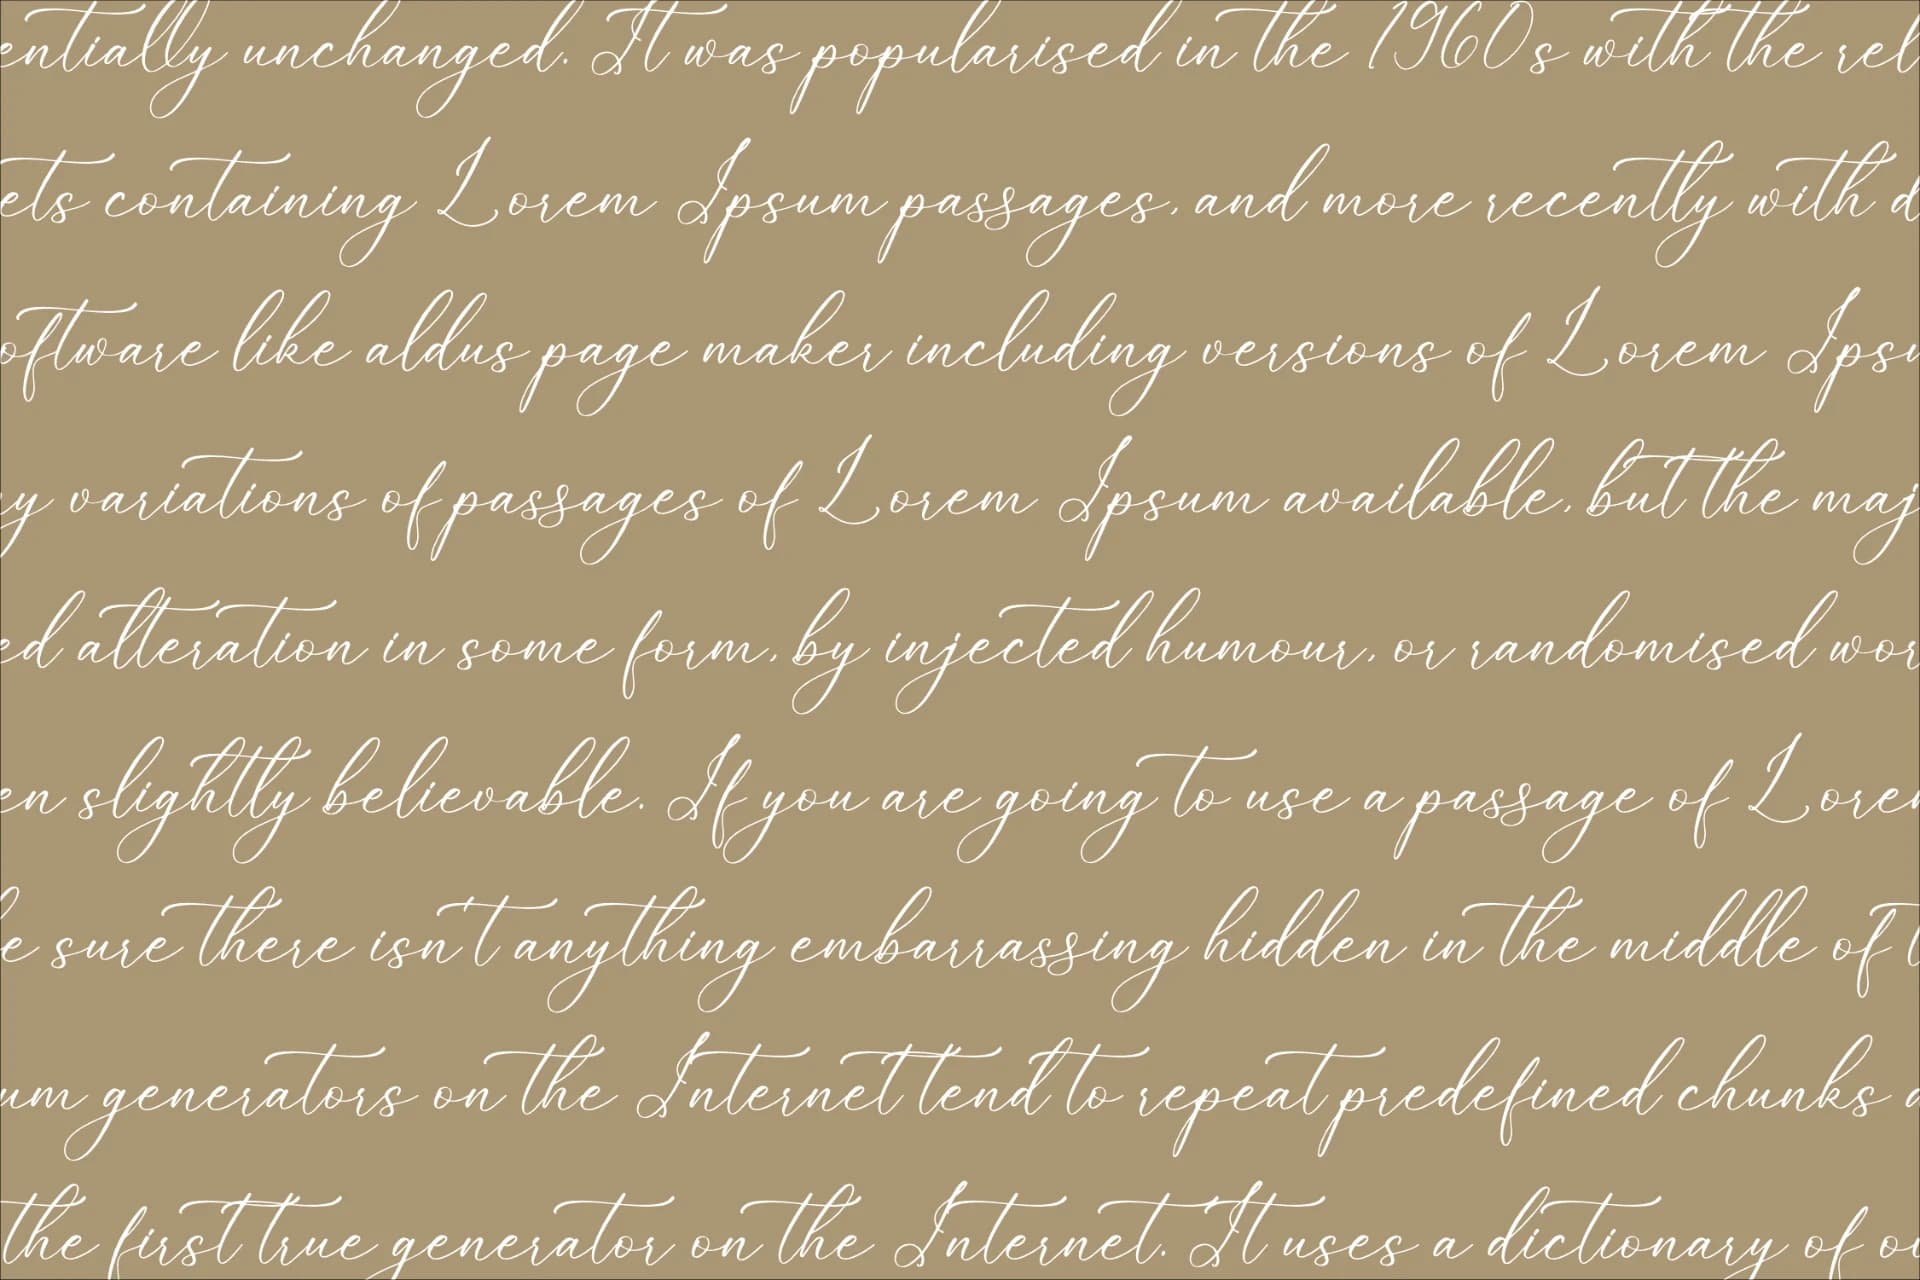 entially unchanged. It was popularised in the 1960s with the rel
ets containing Lorem Ipsum passages, and more recently with d
oftware like aldus page maker including versions of Lorem Ipsu
y variations of passages of Lorem Ipsum available, but the maj
ed alteration in some form, by injected humour, or randomised wor
en slightly believable. If you are going to use a passage of Lorem
e sure there isn't anything embarrassing hidden in the middle of t
um generators on the Internet tend to repeat predefined chunks a
the first true generator on the Internet. It uses a dictionary of ov